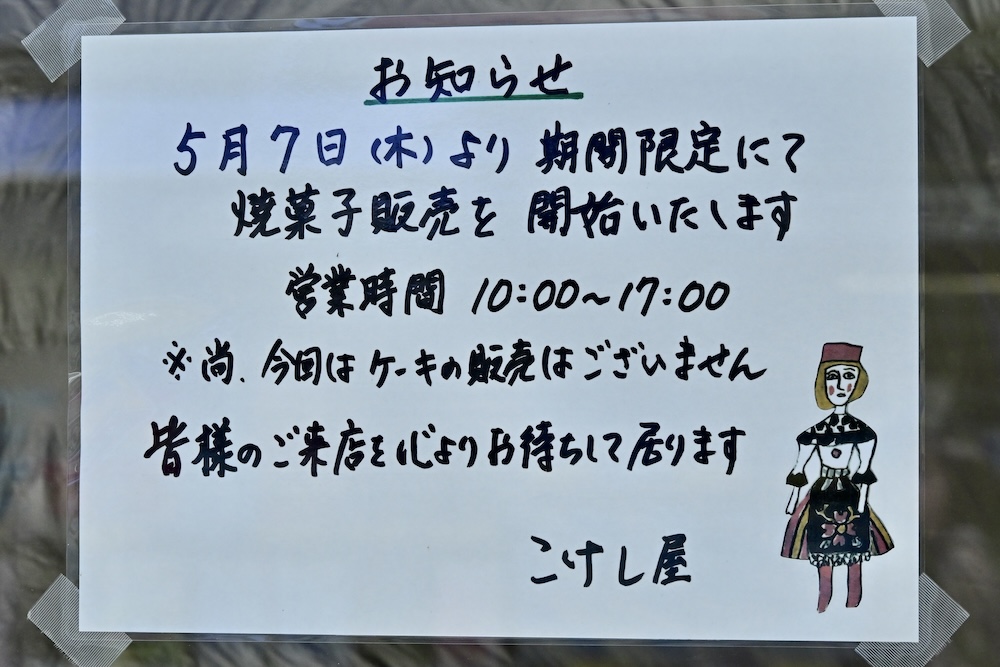 お知らせ
5月7日(木)より 期間限定にて
焼菓子販売を 開始いたします
営業時間 10:00~17:00
※尚、今回はケーキの販売はございません
皆様のご来店を心よりお待ちして居ります
こけし屋